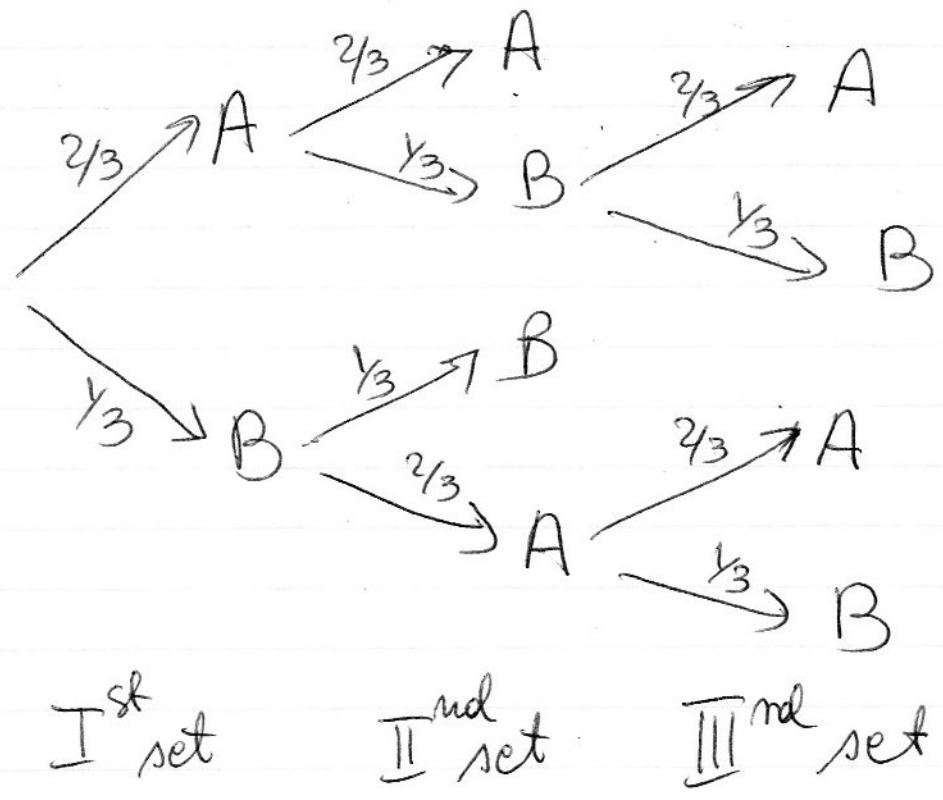 2/3 A
2/3 A
1/3 B
2/3 A
1/3 B
1/3 B
1/3 B
2/3 A
2/3 A
1/3 B
I st set II nd set III rd set